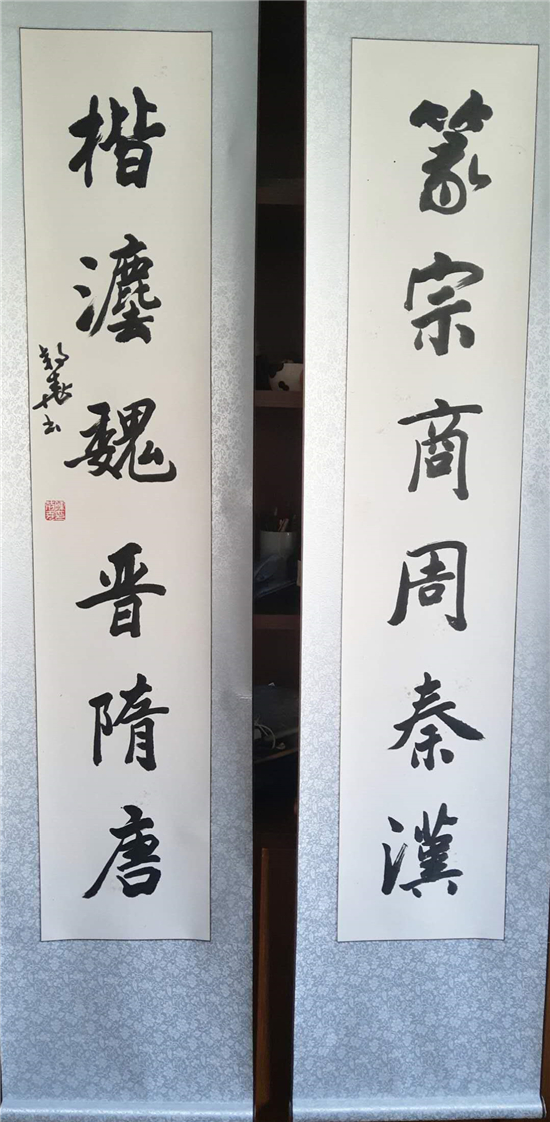 篆宗商周秦漢
楷灋魏晋隋唐